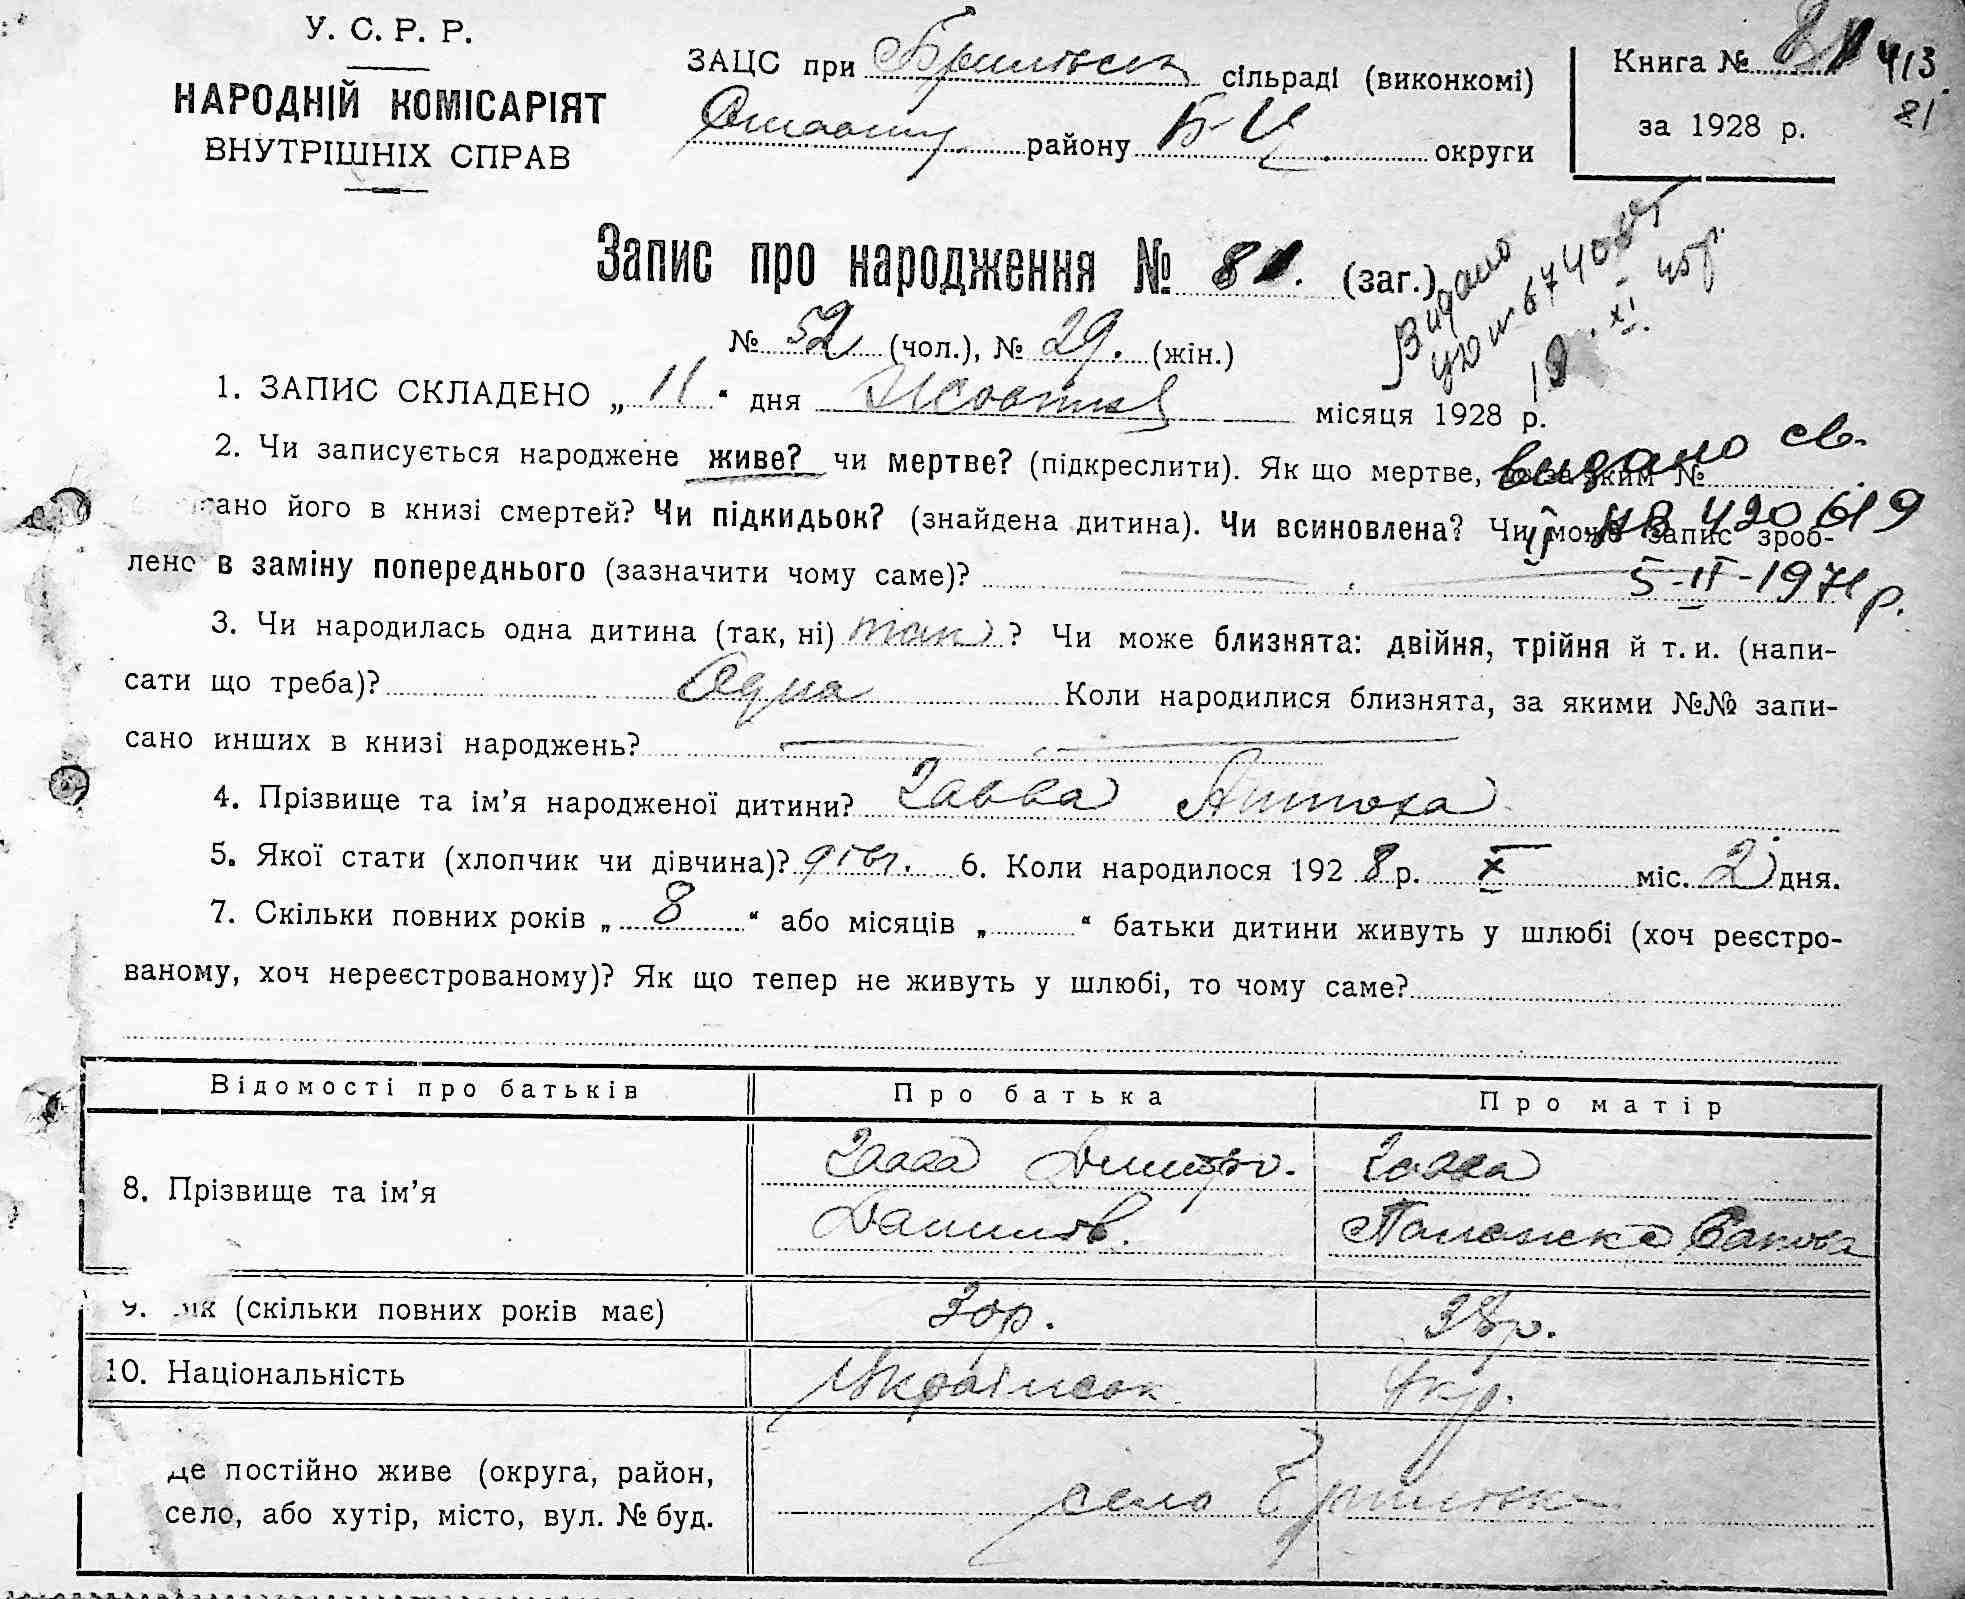 У. С. Р. Р.
НАРОДНІЙ КОМІСАРІЯТ
ВНУТРІШНІХ СПРАВ
ЗАЦС при сільраді (виконкомі)
району Б-Ц. округи
Книга № 413
81
за 1928 р.
Запис про народження № 81. (заг.)
№ 52 (чол.), № 29. (жін.)
Видано
XI 45р.
1. ЗАПИС СКЛАДЕНО „ 11 “ дня Жовтня місяця 1928 р.
2. Чи записується народжене живе? чи мертве? (підкреслити). Як що мертве, за яким №
видано св.
ано його в книзі смертей? Чи підкидьок? (знайдена дитина). Чи всиновлена? Чи може запис зроб-
420619
лено в заміну попереднього (зазначити чому саме)?
5-II-1971р.
3. Чи народилась одна дитина (так, ні) так ? Чи може близнята: двійня, трійня й т. и. (напи-
сати що треба)? Одна Коли народилися близнята, за якими №№ запи-
сано инших в книзі народжень?
4. Прізвище та ім’я народженої дитини? Гавва
5. Якої стати (хлопчик чи дівчина)? дівч. 6. Коли народилося 192 8 р. X міс. 2 дня.
7. Скільки повних років „ 8 “ або місяців „ “ батьки дитини живуть у шлюбі (хоч реєстро-
ваному, хоч нереєстрованому)? Як що тепер не живуть у шлюбі, то чому саме?
Відомості про батьків Про батька Про матір
8. Прізвище та ім’я Гавва Дмитро. Гавва
Данилов.
9. (скільки повних років має) 30р. 28р.
10. Національність Українськ. Укр.
Де постійно живе (округа, район,
село, або хутір, місто, вул. № буд. село